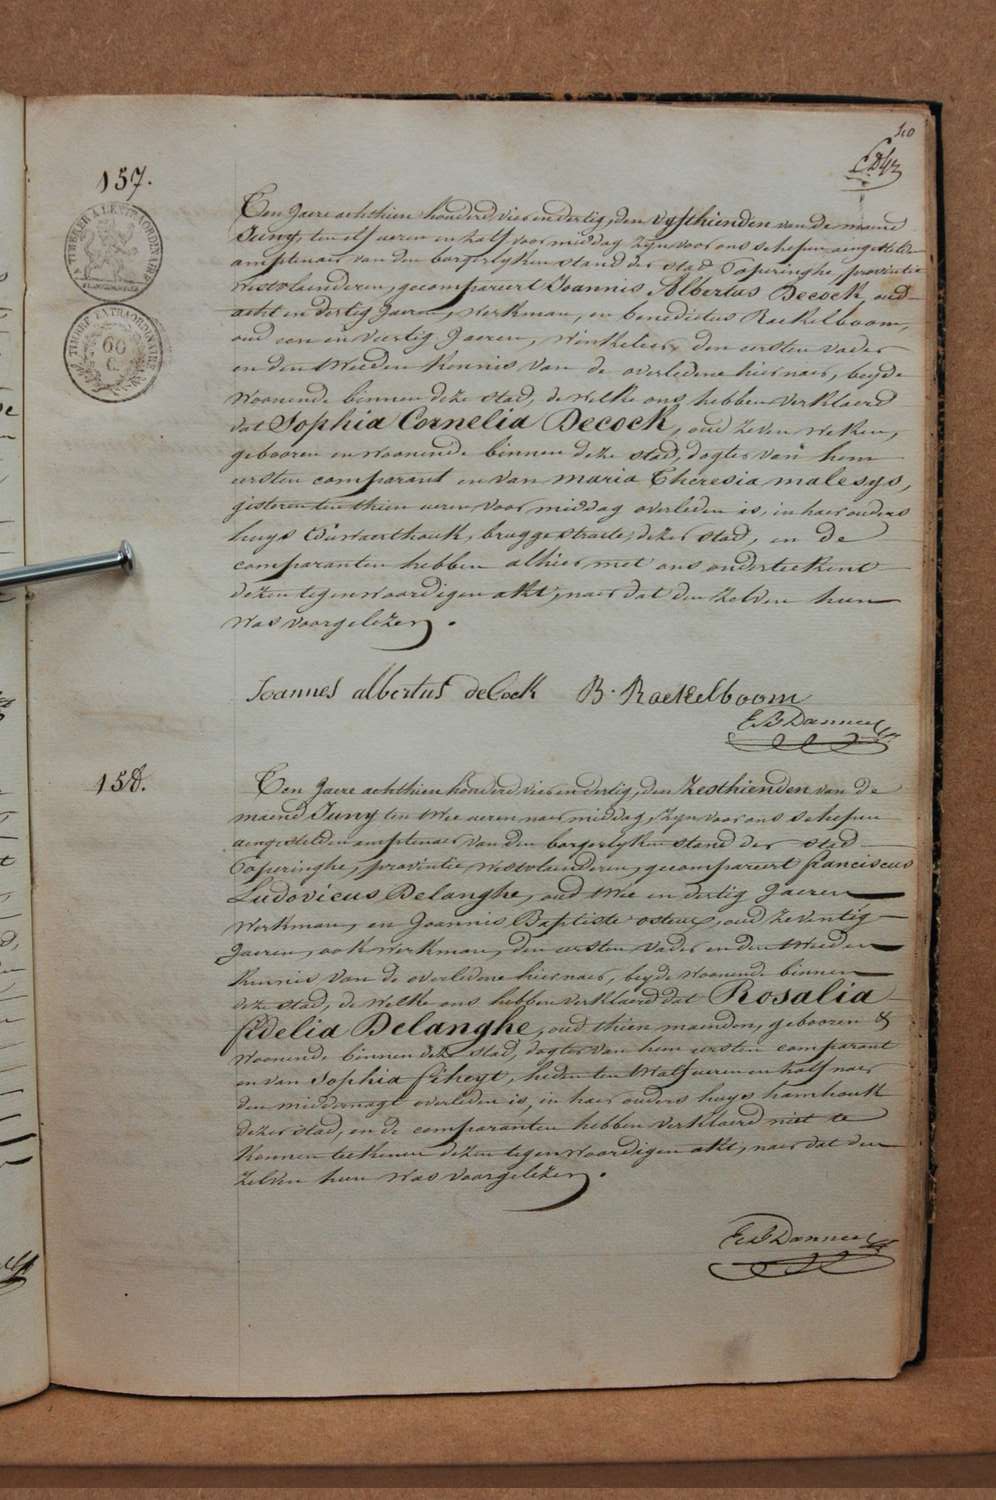 40
157.
A TIMBRER A L'EXTRAORDINAIRE
TIMBRE EXTRAORDINAIRE
60
C.
Ten Jaere achthien honderd vier en dertig, den vyfthienden van de maend
Juny, ten elf ueren en half voor middag zyn voor ons schepen aengestelden
amptenaer van den borgerlyken stand der stad Poperinghe, provintie
westvlaenderen, gecompareert Joannis Albertus Decock, oud
acht en dertig Jaeren, werkman, en benedictus Raekelboom,
oud een en veertig Jaeren, Winkelier, den eersten vader
en den tweeden kennis van de overledene hiernaer, beyde
woonende binnen deze stad, de welke ons hebben verklaerd
dat Sophia Cornelia Decock, oud zeven weken,
gebooren en woonende binnen deze stad, dogter van hem
eersten comparant en van maria Theresia malesys,
gisteren ten thien ueren voor middag overleden is, in haer ouders
huys bruggestraete, dezer stad, en de
comparanten hebben alhier met ons onderteekent
dezen tegenwoordigen akt, naer dat den zelven hun
was voorgelezen.
Joannes albertus deCock B. Raekelboom
158.
Ten Jaere achthien honderd vier en dertig, den zesthienden van de
maend Juny ten twee ueren naer middag, zyn voor ons schepen
aengestelden amptenaer van den borgerlyken stand der stad
Poperinghe, provintie westvlaenderen, gecompareert franciscus
Ludovicus Delanghe, oud twee en dertig Jaeren
werkman, en Joannis Baptiste osteux, oud zeventig
Jaeren, ook werkman, den eersten vader en den tweeden
kennis van de overledene hiernaer, beyde woonende binnen
deze stad, de welke ons hebben verklaerd dat Rosalia
fidelia Delanghe, oud thien maenden, gebooren &
woonende binnen deze stad, dogter van hem eersten comparant
en van Sophia fiheyt, heden ten twalf ueren en half naer
den middernagt overleden is, in haer ouders huys hamhouk
dezer stad, en de comparanten hebben verklaerd niet te
konnen teekenen dezen tegenwoordigen akt, naer dat den
zelven hun was voorgelezen.